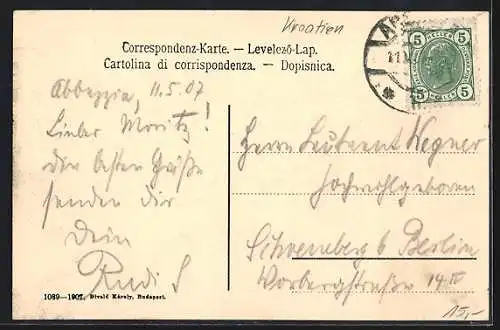 Kroatien
Correspondenz-Karte. — Levelező-Lap.
Cartolina di corrispondenza. — Dopisnica.
5 5
5 5
Abbazzia, 11.5.07
Lieber Moritz!
die besten Grüße
senden dir
Dein
Rudi S
Herrn Leutnant Wegner
Hochwohlgeboren
Schöneberg b Berlin
Vorbergstraße 14 III
1089—1907. Divald Károly, Budapest.
15,-